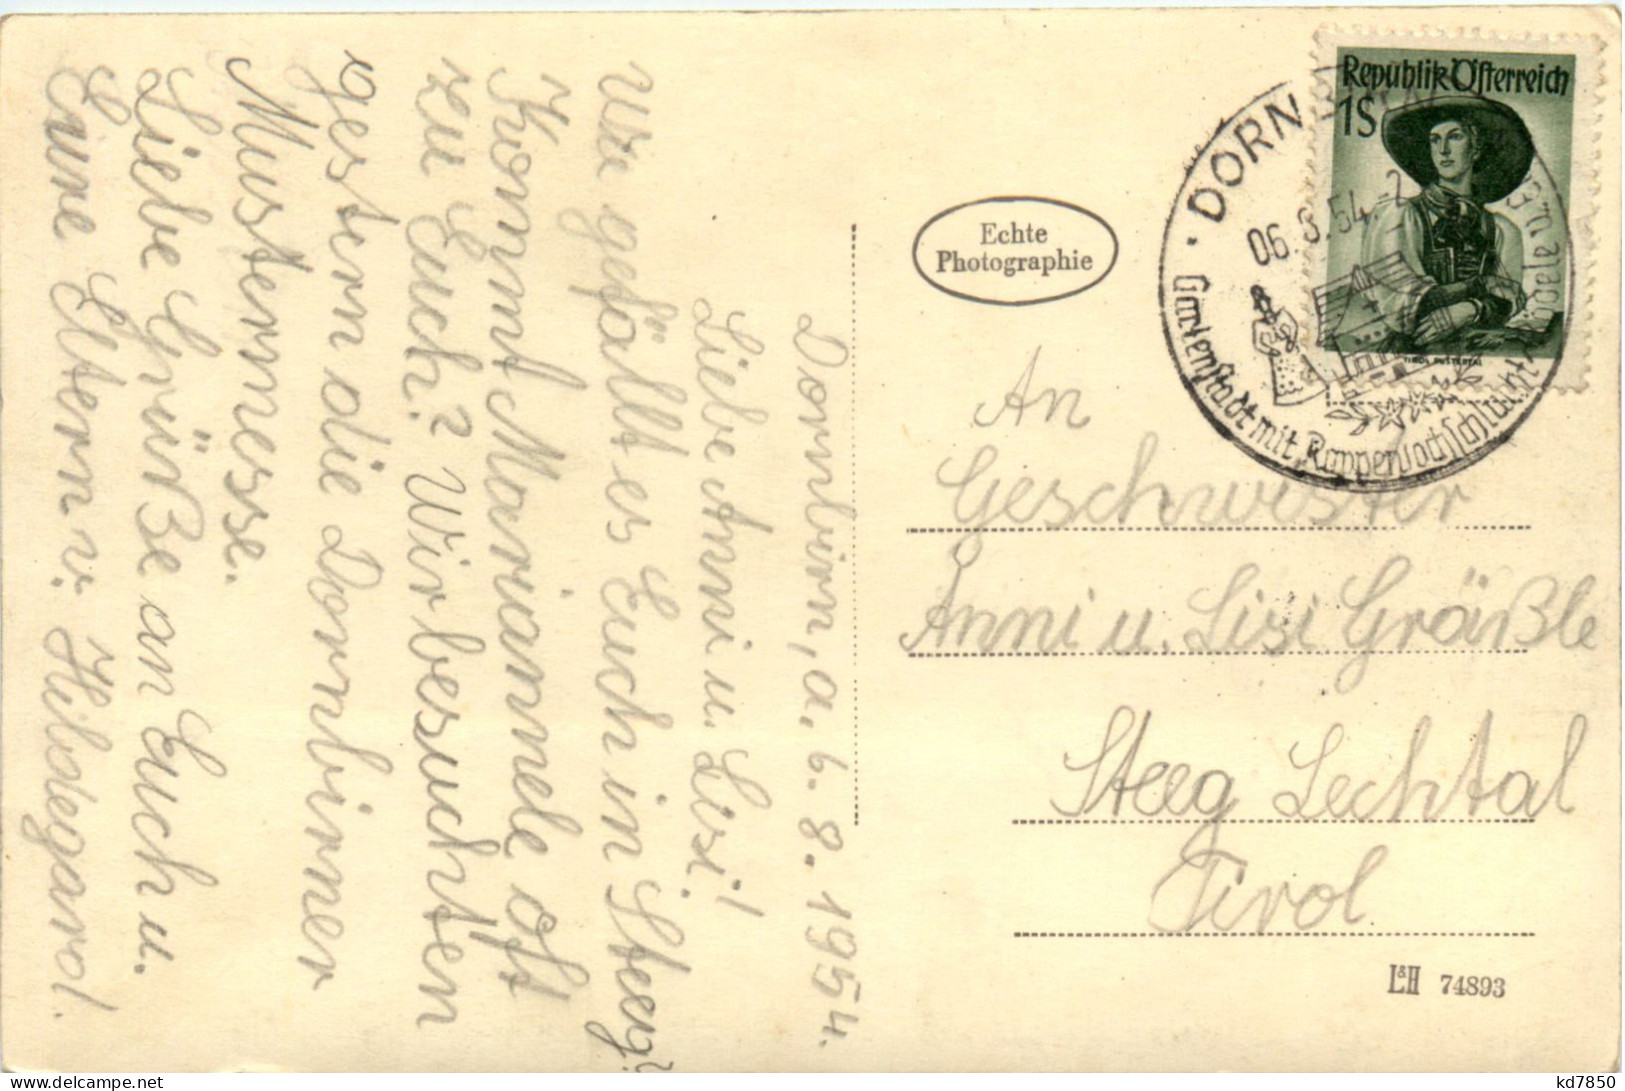 Dornbirn, a. 6. 8. 1954.
Liebe Anni u. Lisi!
Wie gefällt es Euch in Steeg?
Kommt Mariannele oft
zu Euch? Wir besuchten
gestern die Dornbirner
Mustermesse.
Liebe Grüße an Euch u.
Eure Eltern v. Hildegard.
Echte
Photographie
Republik Österreich
1S
TIROL PUSTERTAL
DORNBIRN
06.8.54.-2
Gartenstadt mit Rappenlochschlucht
An
Geschwister
Anni u. Lisi Gräßle
Steeg Lechtal
Tirol
L&H 74893
kd7850